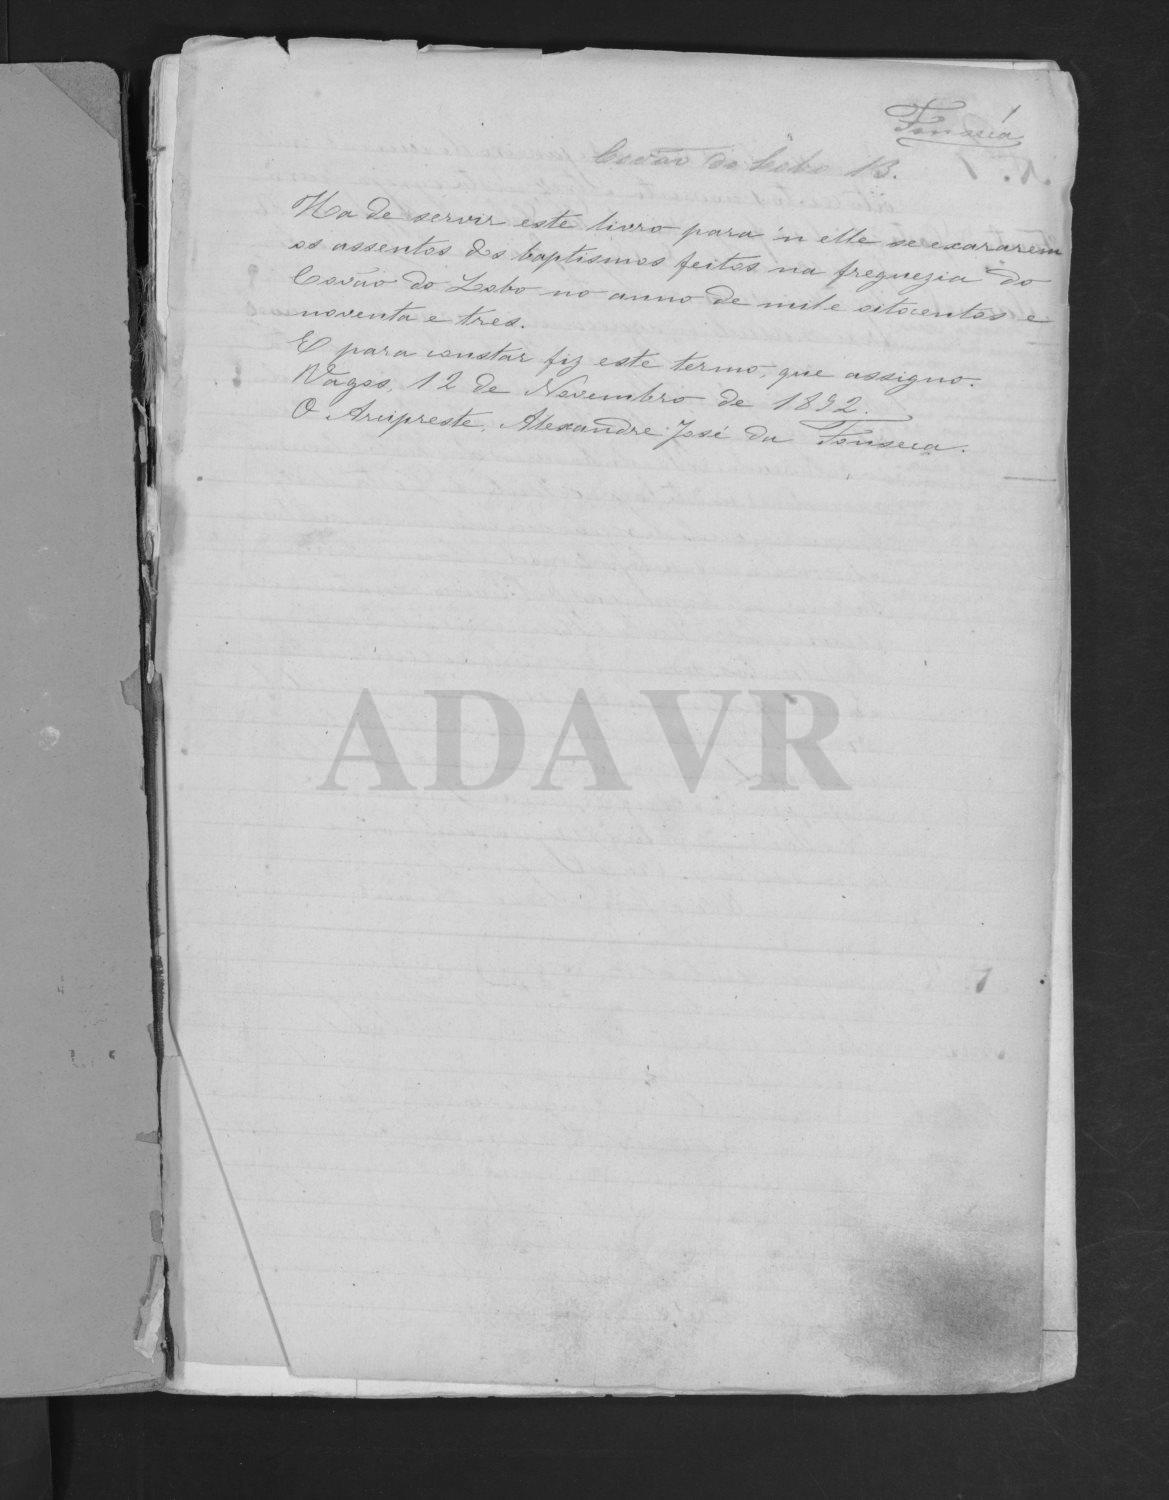 1
Fonseca
Covão do Lobo B.
Ha de servir este livro para n'elle se exararem
os assentos dos baptismos feitos na freguezia do
Covão do Lobo no anno de mil e oitocentos e
noventa e tres.
E para constar fiz este termo, que assigno.
Vagos, 12 de Novembro de 1892.
O Arcipreste, Alexandre José da Fonseca.
ADAVR